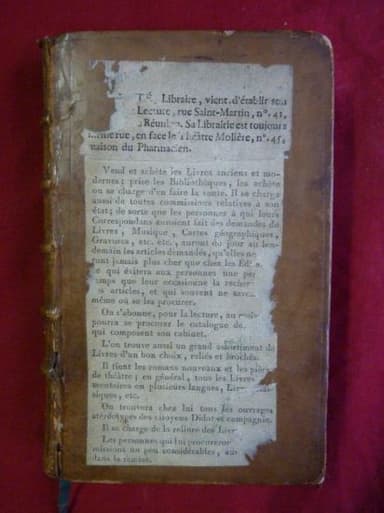 Libraire, vient d'établir son
Lecture, rue Saint-Martin, n°. 41,
Réunion. Sa Librairie est toujours
même rue, en face le Théâtre Molière, n°. 45,
maison du Pharmacien.
Vend et achète les Livres anciens et mo-
dernes; prise les Bibliothèques, les achète
ou se charge d'en faire la vente. Il se charge
aussi de toutes commissions relatives à son
état; de sorte que les personnes à qui leurs
Correspondans auroient fait des demandes de
Livres, Musique, Cartes géographiques,
Gravures, etc. etc., auront du jour au len-
demain les articles demandés, qu'elles ne
ront jamais plus cher que chez les
ce qui évitera aux personnes une per
temps que leur occasionne la recher
s articles, et qui souvent ne save
même où se les procurer.
On s'abonne, pour la lecture, au mois
pourra se procurer le catalogue de
qui composent son cabinet.
L'on trouve aussi un grand assortiment de
Livres d'un bon choix, reliés et brochés.
Il tient les romans nouveaux et les pièces
de théâtre; en général, tous les Livres
mentaires en plusieurs langues,
siques, etc.
On trouvera chez lui tous les ouvrages
stéréotypes des citoyens Didot et compagnie.
Il se charge de la reliure des Livr
Les personnes qui lui procureront
missions un peu considérables, au
dans la remise.